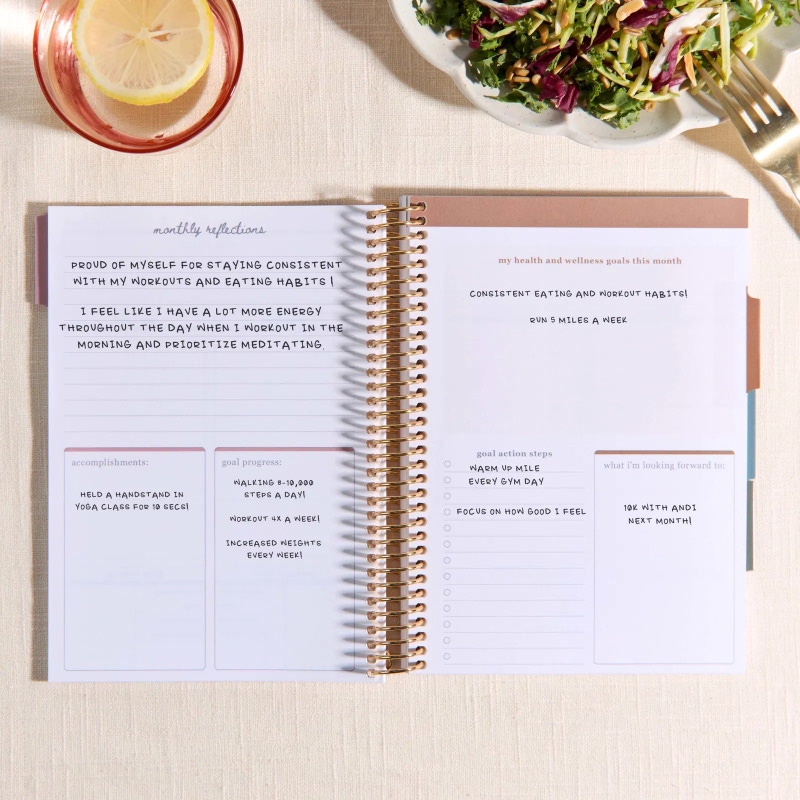 monthly reflections
PROUD OF MYSELF FOR STAYING CONSISTENT
WITH MY WORKOUTS AND EATING HABITS!
I FEEL LIKE I HAVE A LOT MORE ENERGY
THROUGHOUT THE DAY WHEN I WORKOUT IN THE
MORNING AND PRIORITIZE MEDITATING.
accomplishments:
HELD A HANDSTAND IN
YOGA CLASS FOR 10 SECS!
goal progress:
WALKING 8-10,000
STEPS A DAY!
WORKOUT 4X A WEEK!
INCREASED WEIGHTS
EVERY WEEK!
my health and wellness goals this month
CONSISTENT EATING AND WORKOUT HABITS!
RUN 5 MILES A WEEK
goal action steps
WARM UP MILE
EVERY GYM DAY
FOCUS ON HOW GOOD I FEEL
what i'm looking forward to:
10K WITH ANDI
NEXT MONTH!